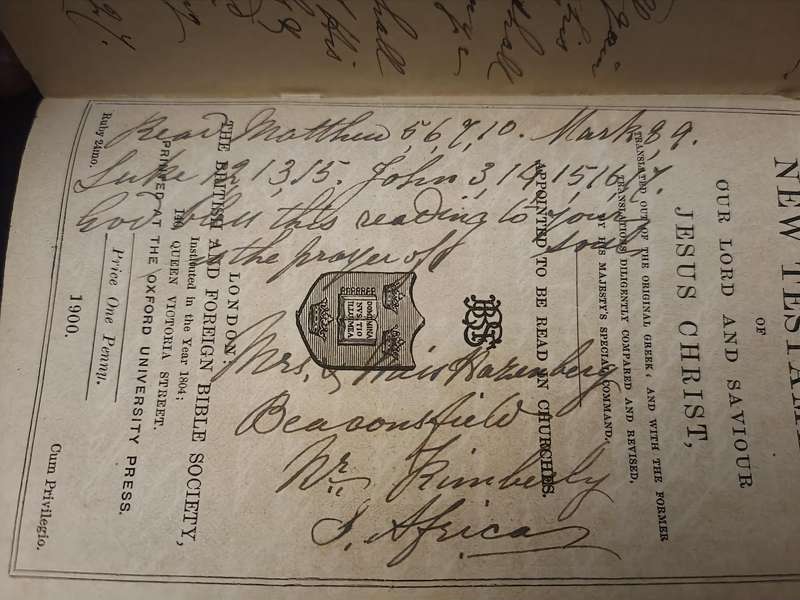 Read Matthew 5,6,7,10. Mark 8,9.
Luke 12 13 15. John 3, 14, 15, 16, 17.
God bless this reading to your
soul
is the prayer of
Mrs. & Miss
Beaconsfield
Nr. Kimberly
S. Africa
NEW TESTAM
OF
OUR LORD AND SAVIOUR
JESUS CHRIST,
TRANSLATED OUT OF THE ORIGINAL GREEK; AND WITH THE FORMER
TRANSLATIONS DILIGENTLY COMPARED AND REVISED,
BY HIS MAJESTY'S SPECIAL COMMAND.
APPOINTED TO BE READ IN CHURCHES.
BFBS
DOMINUS ILLUMINATIO MEA
LONDON:
THE BRITISH AND FOREIGN BIBLE SOCIETY,
Instituted in the Year 1804;
146 QUEEN VICTORIA STREET.
PRINTED AT THE OXFORD UNIVERSITY PRESS.
Price One Penny.
1900.
Ruby 24mo.
Cum Privilegio.